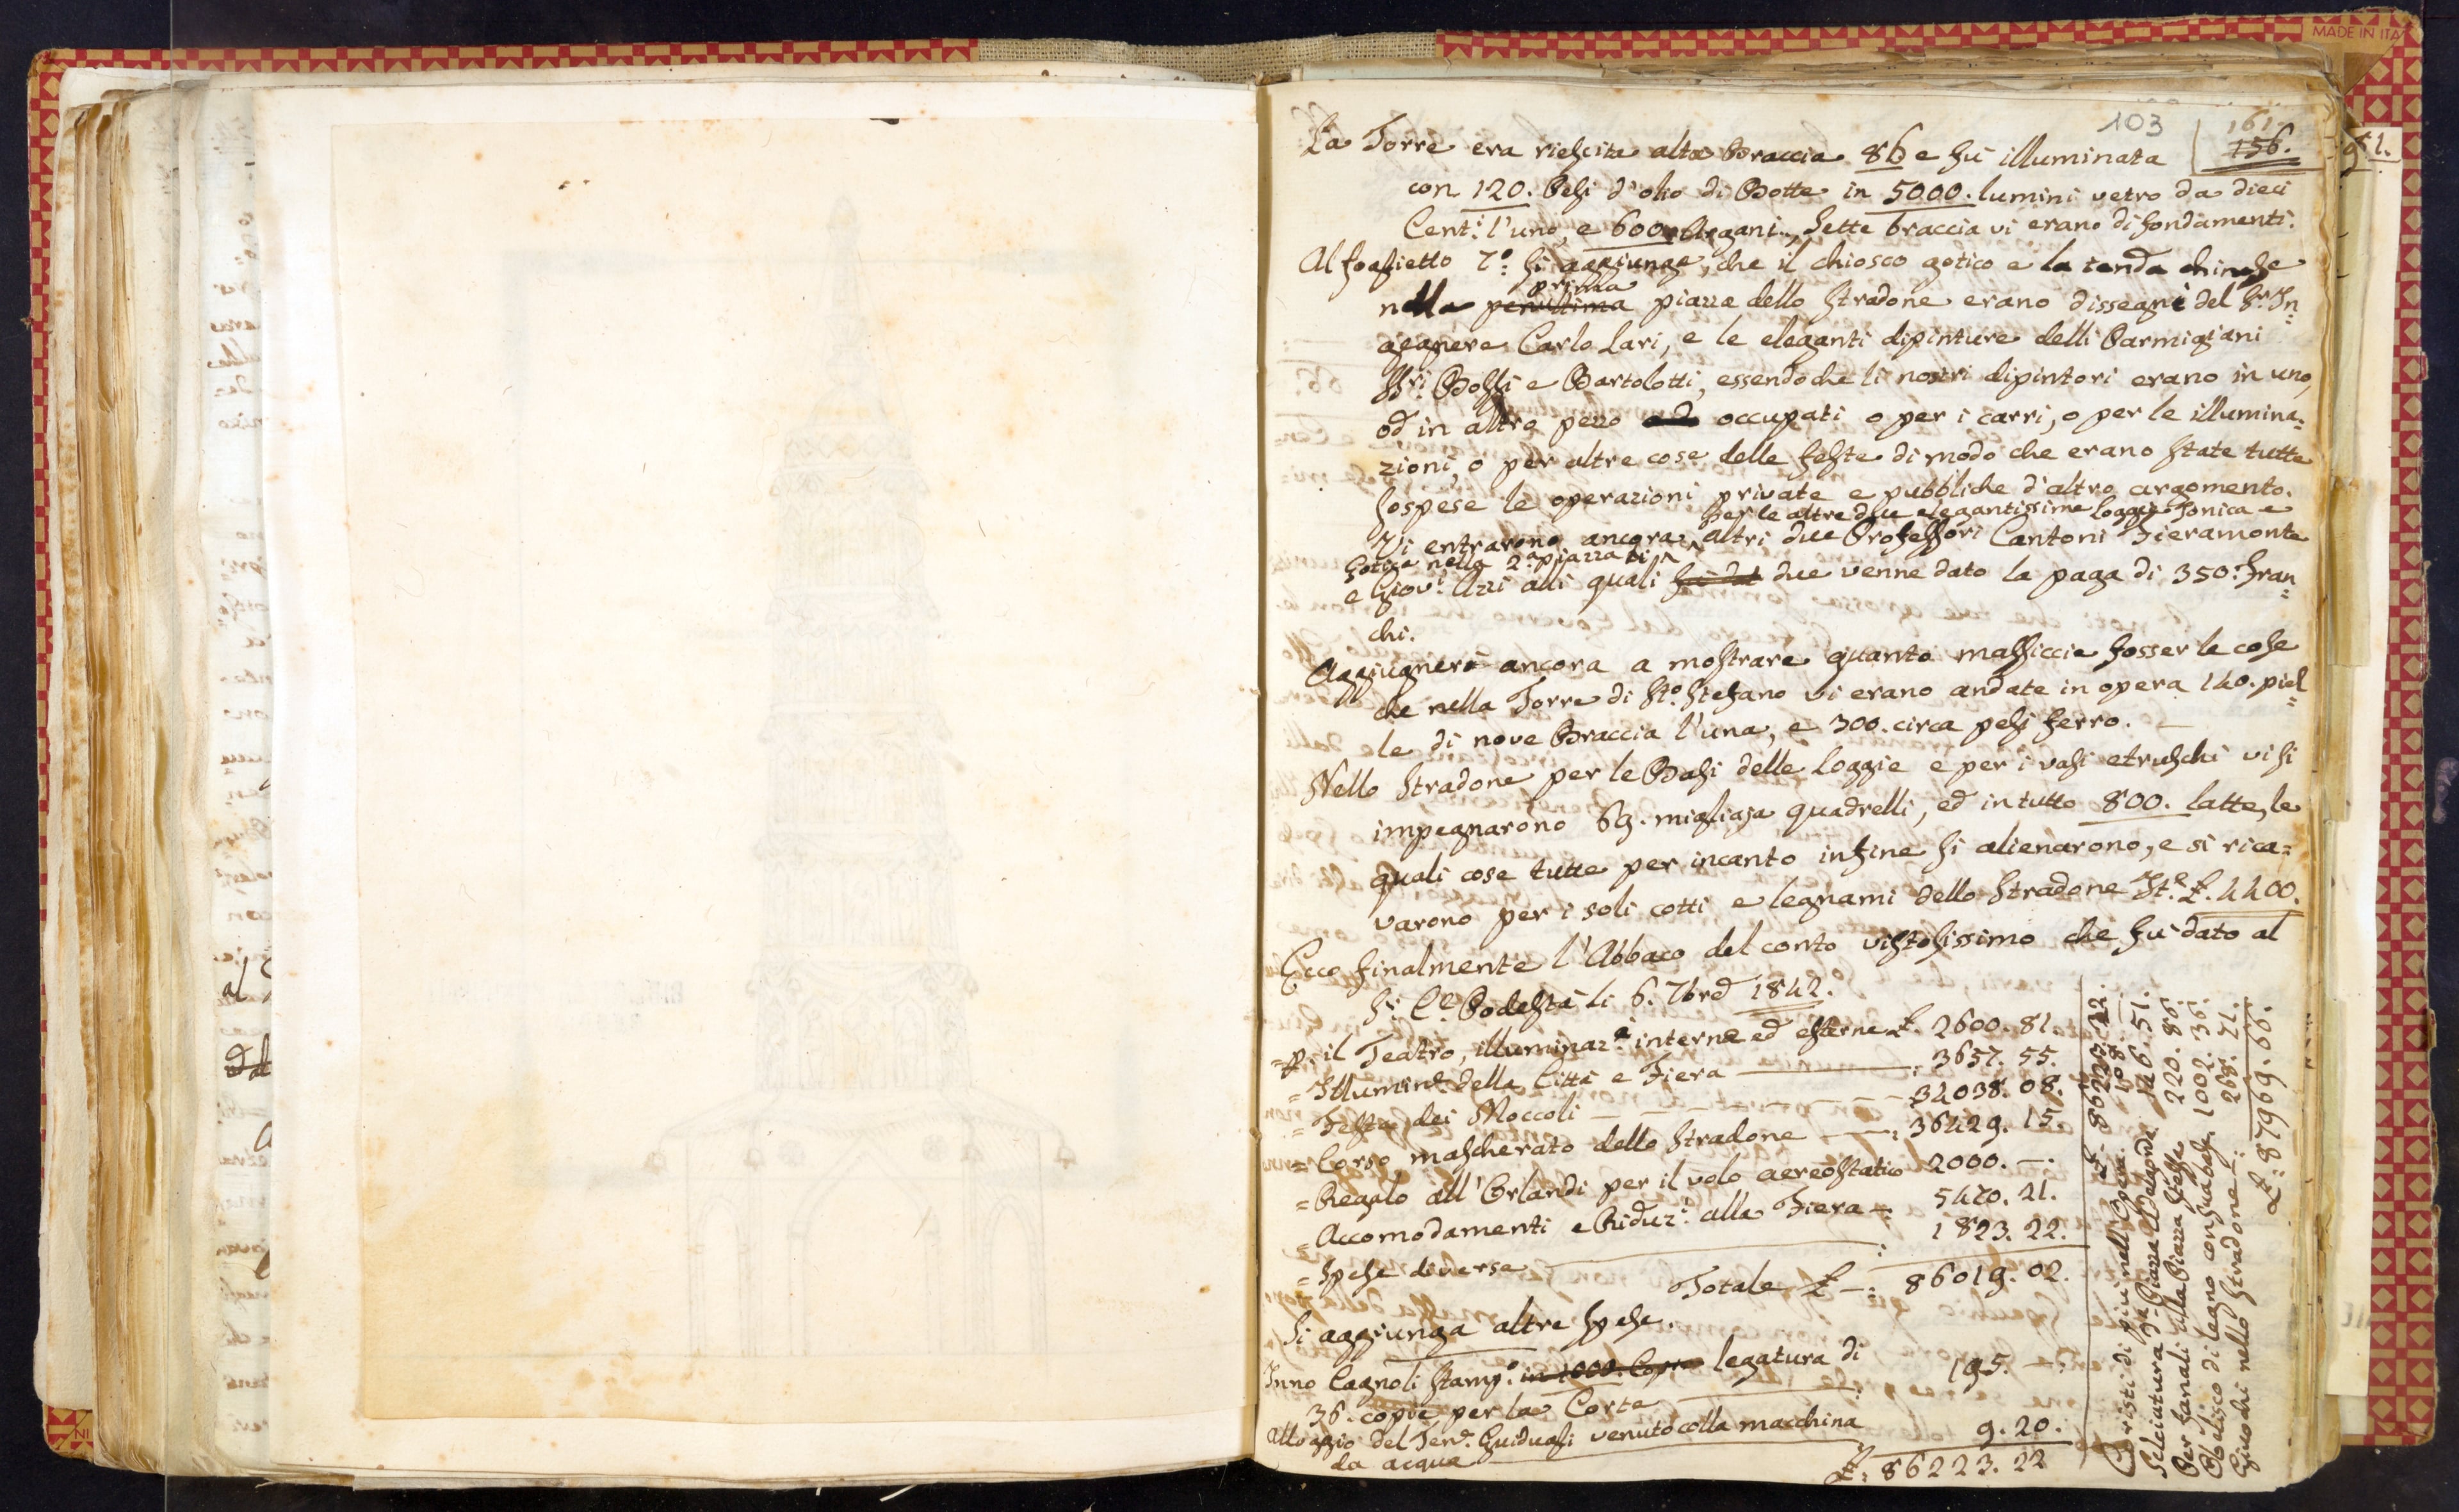 MADE IN ITA
103
161.
156.
La Torre era riescita alta Braccia 86 e fu illuminata
con 120. Pesi d'olio di Botte in 5000. lumini vetro da dieci
Cent.i l'uno, e 600 Argani. Sette braccia vi erano di fondamenti.
Al foglietto 7.o si aggiunge, che il chiosco gotico e la tenda chinese
prima
nella penultima piazza dello Stradone erano dissegni del Sr. In=
gegnere Carlo Lari, e le eleganti dipinture delli Parmigiani
SSri Bossi e Bartolotti, essendoche li nostri dipintori erano in uno,
od in altro pezzo occupati o per i carri, o per le illumina=
zioni, o per altre cose delle feste di modo che erano state tutte
sospese le operazioni private e pubbliche d'altro argomento.
per le altre due elegantissime loggie Jonica e
Vi entrarono ancora altri due Professori Cantoni Fieramonte
Gotica nella 2.a piazza di
e Giov.i Azzi alli quali fu dat due venne dato la paga di 350. Fran=
chi.
Aggiugnerò ancora a mostrare quanto massiccie fosser le cose
che nella Torre di Sto. Stefano vi erano andate in opera 140. piel=
le di nove Braccia l'una, e 300. circa pesi ferro.
Nello Stradone per le Basi delle loggie e per i vasi etruschi vi si
impegnarono 69. migliaja quadrelli, ed in tutto 800. latte, le
quali cose tutte per incanto infine si alienarono, e si rica=
varono per i soli cotti e legnami dello Stradone It.e £. 4400.
Ecco finalmente l'Abbaco del conto vistosissimo che fu dato al
Podestà li 6. 7bre 1842.
= p. il Teatro, illuminaz.e interne ed esterne £. 2600. 81.
= Illumin.e della Città e Fiera 3657. 55.
= Festa dei Moccoli 34038. 08.
= Corso mascherato dello Stradone 36429. 15.
= Regalo all'Orlandi per il volo aereostatico 2000. —.
= Accomodamenti e Riduz.i alla Fiera 5470. 21.
= Spese diverse 1823. 22.
Totale £ 86019. 02.
Si aggiunga altre spese.
Inno Cagnoli stamp.o in 1000. Copie legatura di
36. copie per la Corte 195. —
Alloggio del Ten.e Guidugli venuto colla macchina
da acqua 9. 20.
£: 86223. 22
£. 86223. 22.
Coristi di più nell'Opera. 108. —
Selciatura 146. 51.
Per fanali alla Piazza stessa 220. 86.
Obelisco di legno con sua base 1002. 36.
Giuochi nello Stradone 268. 71.
£: 87969. 66.